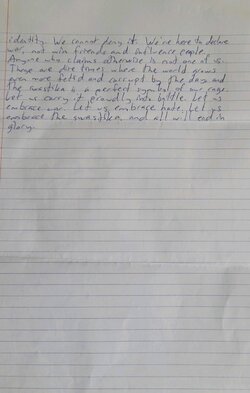 identity. We cannot deny it. We're here to declare
war, not win friends and influence people.
Anyone who claims otherwise is not one of us.
These are dire times where the world grows
even more fetid and corrupt by the day and
the swastika is a perfect symbol of our rage.
Let us carry it proudly into battle. Let us
embrace war. Let us embrace hate. Let us
embrace the swastika, and all will end in
glory.